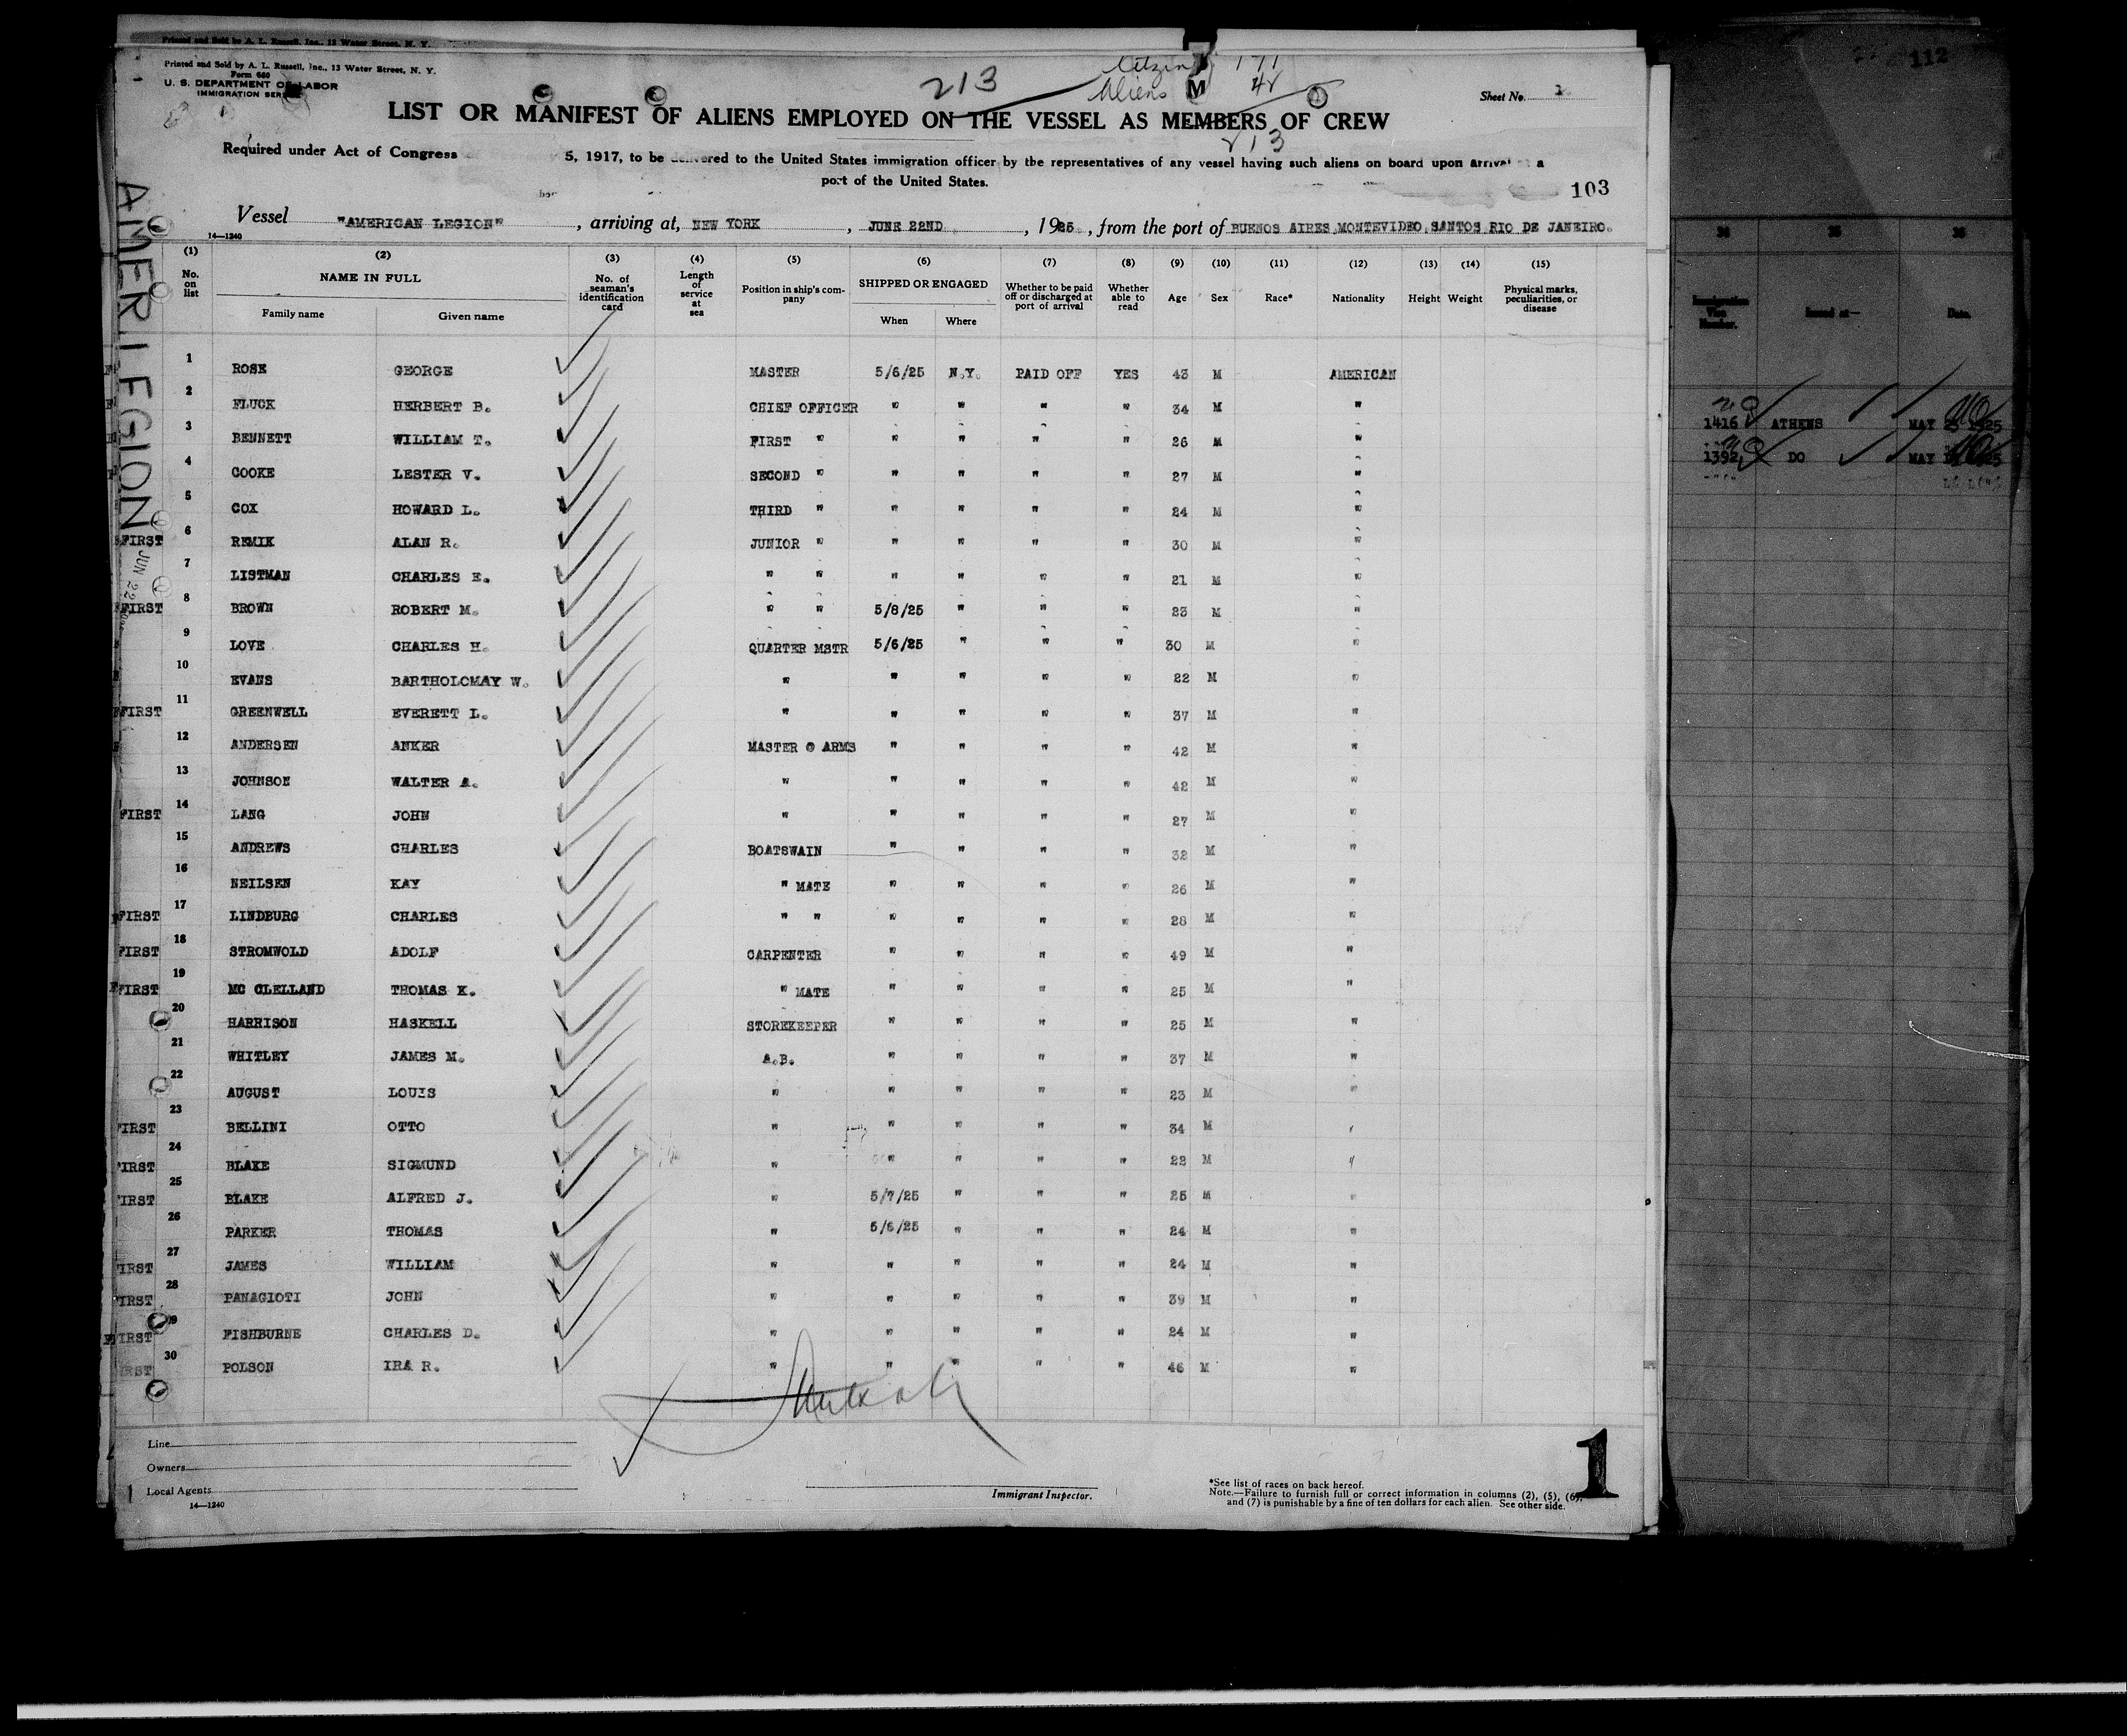 Printed and Sold by A. L. Russell, Inc., 13 Water Street, N. Y.
Printed and Sold by A. L. Russell, Inc., 13 Water Street, N. Y.
Form 680
U. S. DEPARTMENT OF LABOR
IMMIGRATION
213
Citizen 171
Aliens 42
213
M
Sheet No. 1
112
LIST OR MANIFEST OF ALIENS EMPLOYED ON THE VESSEL AS MEMBERS OF CREW
Required under Act of Congress 5, 1917, to be delivered to the United States immigration officer by the representatives of any vessel having such aliens on board upon arrival at a
port of the United States.
103
Vessel "AMERICAN LEGION", arriving at, NEW YORK, JUNE 22ND, 1925, from the port of BUENOS AIRES, MONTEVIDEO, SANTOS RIO DE JANEIRO.
14—1240
AMER LEGION
JUN 22
(1) (2) (3) (4) (5) (6) (7) (8) (9) (10) (11) (12) (13) (14) (15)
No. on list
NAME IN FULL
Family name
Given name
No. of seaman's identification card
Length of service at sea
Position in ship's company
SHIPPED OR ENGAGED
When
Where
Whether to be paid off or discharged at port of arrival
Whether able to read
Age
Sex
Race*
Nationality
Height
Weight
Physical marks, peculiarities, or disease
1 ROSE GEORGE MASTER 5/6/25 N.Y. PAID OFF YES 43 M AMERICAN
2 FLUCK HERBERT B. CHIEF OFFICER " " " " 34 M "
3 BENNETT WILLIAM T. FIRST " " " " " 26 M "
4 COOKE LESTER V. SECOND " " " " " 27 M "
5 COX HOWARD L. THIRD " " " " " 24 M "
FIRST 6 REMIK ALAN R. JUNIOR " " " " " 30 M "
7 LISTMAN CHARLES E. " " " " " " 21 M "
FIRST 8 BROWN ROBERT M. " " 5/8/25 " " " 23 M "
9 LOVE CHARLES H. QUARTER MSTR 5/6/25 " " " 30 M "
10 EVANS BARTHOLOMAY W. " " " " " 22 M "
FIRST 11 GREENWELL EVERETT L. " " " " " 37 M "
12 ANDERSEN ANKER MASTER @ ARMS " " " " 42 M "
13 JOHNSON WALTER A. " " " " " 42 M "
FIRST 14 LANG JOHN " " " " " 27 M "
15 ANDREWS CHARLES BOATSWAIN " " " " 32 M "
16 NEILSEN KAY " MATE " " " " 26 M "
FIRST 17 LINDBURG CHARLES " " " " " " 28 M "
FIRST 18 STROMWOLD ADOLF CARPENTER " " " " 49 M "
FIRST 19 MC CLELLAND THOMAS K. " MATE " " " " 25 M "
20 HARRISON HASKELL STOREKEEPER " " " " 25 M "
21 WHITLEY JAMES M. A.B. " " " " 37 M "
22 AUGUST LOUIS " " " " " 23 M "
FIRST 23 BELLINI OTTO " " " " " 34 M "
FIRST 24 BLAKE SIGMUND " " " " " 22 M "
FIRST 25 BLAKE ALFRED J. " 5/7/25 " " " 25 M "
26 PARKER THOMAS " 5/6/25 " " " 24 M "
FIRST 27 JAMES WILLIAM " " " " " 24 M "
FIRST 28 PANAGIOTI JOHN " " " " " 39 M "
FIRST 29 FISHBURNE CHARLES D. " " " " " 24 M "
FIRST 30 POLSON IRA R. " " " " " 46 M "
Line
Owners
Local Agents
14—1240
Immigrant Inspector.
*See list of races on back hereof.
Note.—Failure to furnish full or correct information in columns (2), (5), (6), and (7) is punishable by a fine of ten dollars for each alien. See other side.
1
34 35 36
Immigration Visa Number.
Issued at—
Date.
1416 ATHENS MAY 1925
1392 DO MAY